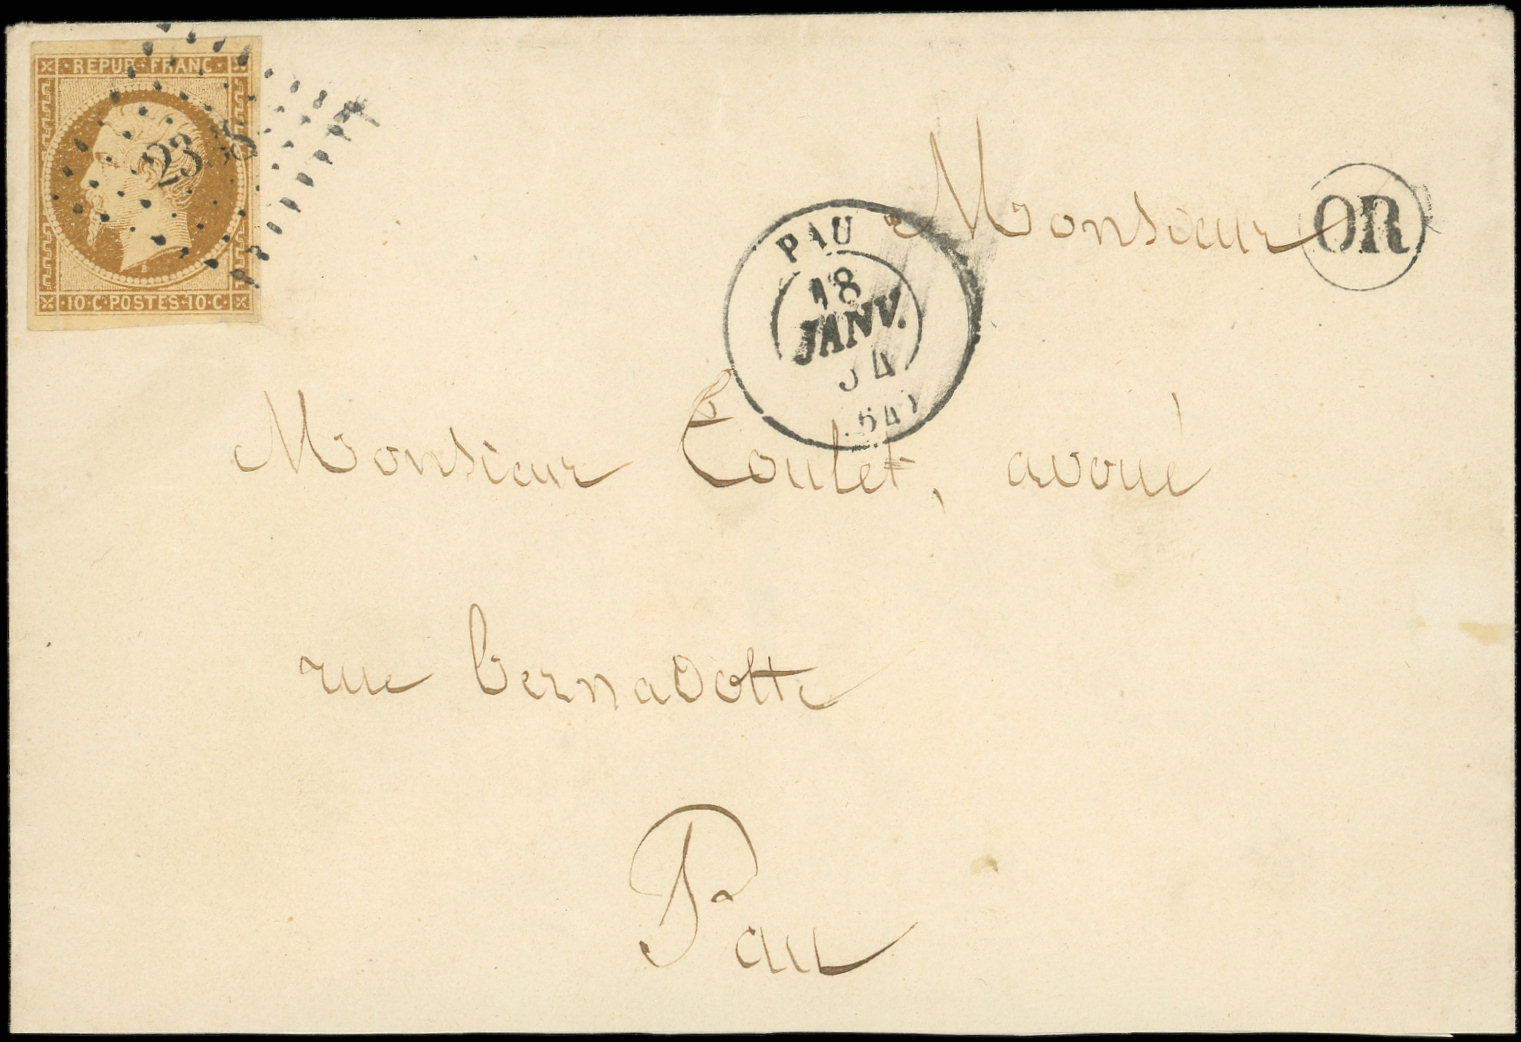 REPUB · FRANC ·
10 · C · POSTES · 10 · C ·
23
PAU
18
JANV.
54
(64)
OR
Monsieur
Monsieur Toulet, avoué
rue bernadotte
Pau